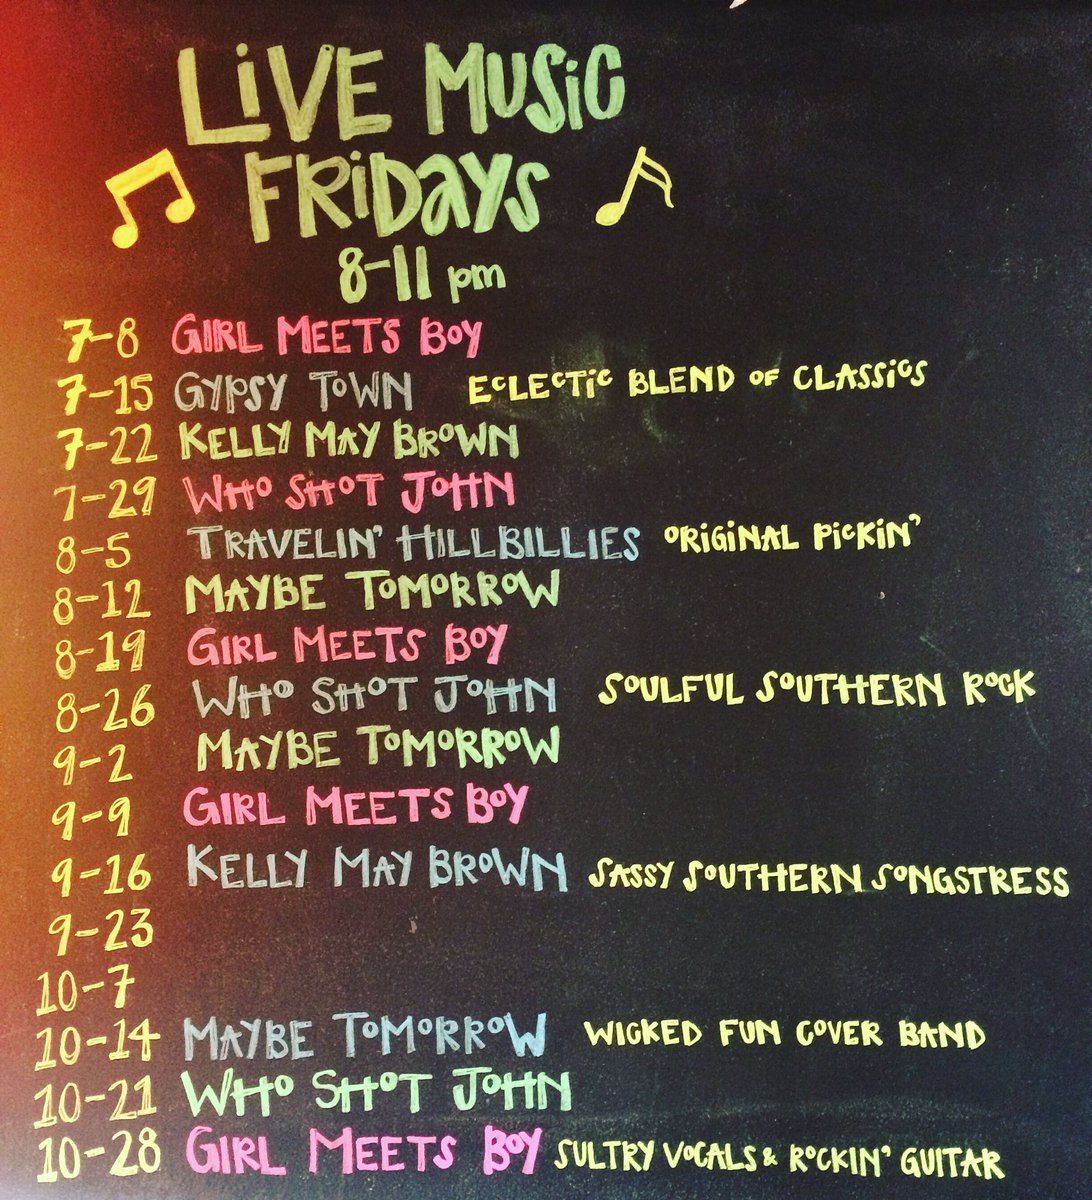 LiVE MUSiC
FRiDAYS
8-11 pm
7-8 GIRL MEETS BOY
7-15 GYPSY TOWN ECLECTiC BLEND OF CLASSiCS
7-22 KELLY MAY BROWN
7-29 WHO SHOT JOHN
8-5 TRAVELIN' HILLBILLIES ORiGiNAL PiCKiN'
8-12 MAYBE TOMORROW
8-19 GIRL MEETS BOY
8-26 WHO SHOT JOHN SOULFUL SOUTHERN ROCK
9-2 MAYBE TOMORROW
9-9 GIRL MEETS BOY
9-16 KELLY MAY BROWN SASSY SOUTHERN SONGSTRESS
9-23
10-7
10-14 MAYBE TOMORROW WICKED FUN COVER BAND
10-21 WHO SHOT JOHN
10-28 GIRL MEETS BOY SULTRY VOCALS & ROCKIN' GUITAR